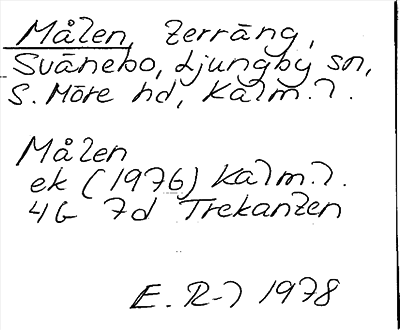 Målen, terräng,
Svänebo, Ljungby sn,
S. Möre hd, Kalm.l.
Målen
ek (1976) Kalm.l.
4G 7d Trekanten
E. R-l 1978